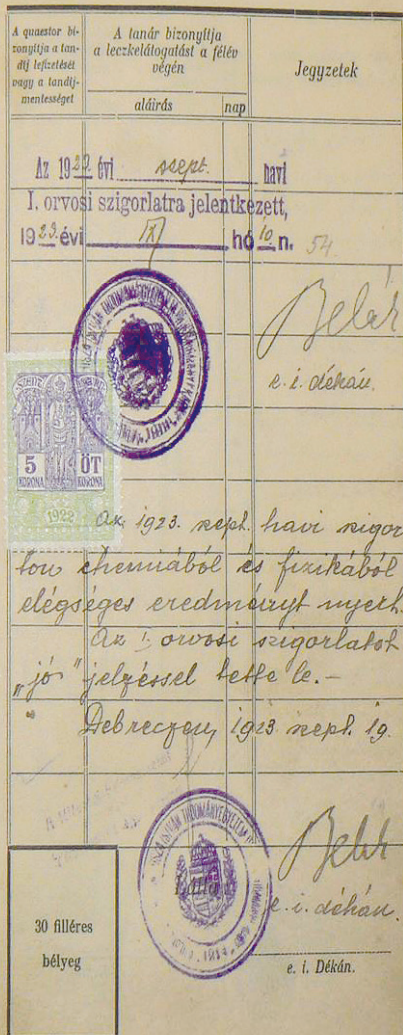 A quaestor bi-
zonyítja a tan-
díj lefizetését
vagy a tandíj-
mentességet
A tanár bizonyítja
a leczkelátogatást a félév
végén
aláírás
nap
Jegyzetek
Az 1923 évi szept. havi
I. orvosi szigorlatra jelentkezett,
1923. évi IX hó 10. n. 54
Belák
e. i. dékán.
5
KORONA
ÖT
KORONA
1922
Az 1923. szept. havi szigor
laton chemiából és fizikából
elégséges eredményt nyert.
Az I. orvosi szigorlatot
„jó" jelzéssel tette le.-
Debreczen, 1923 szept. 19.
Belák
e. i. dékán.
e. i. Dékán.
30 filléres
bélyeg